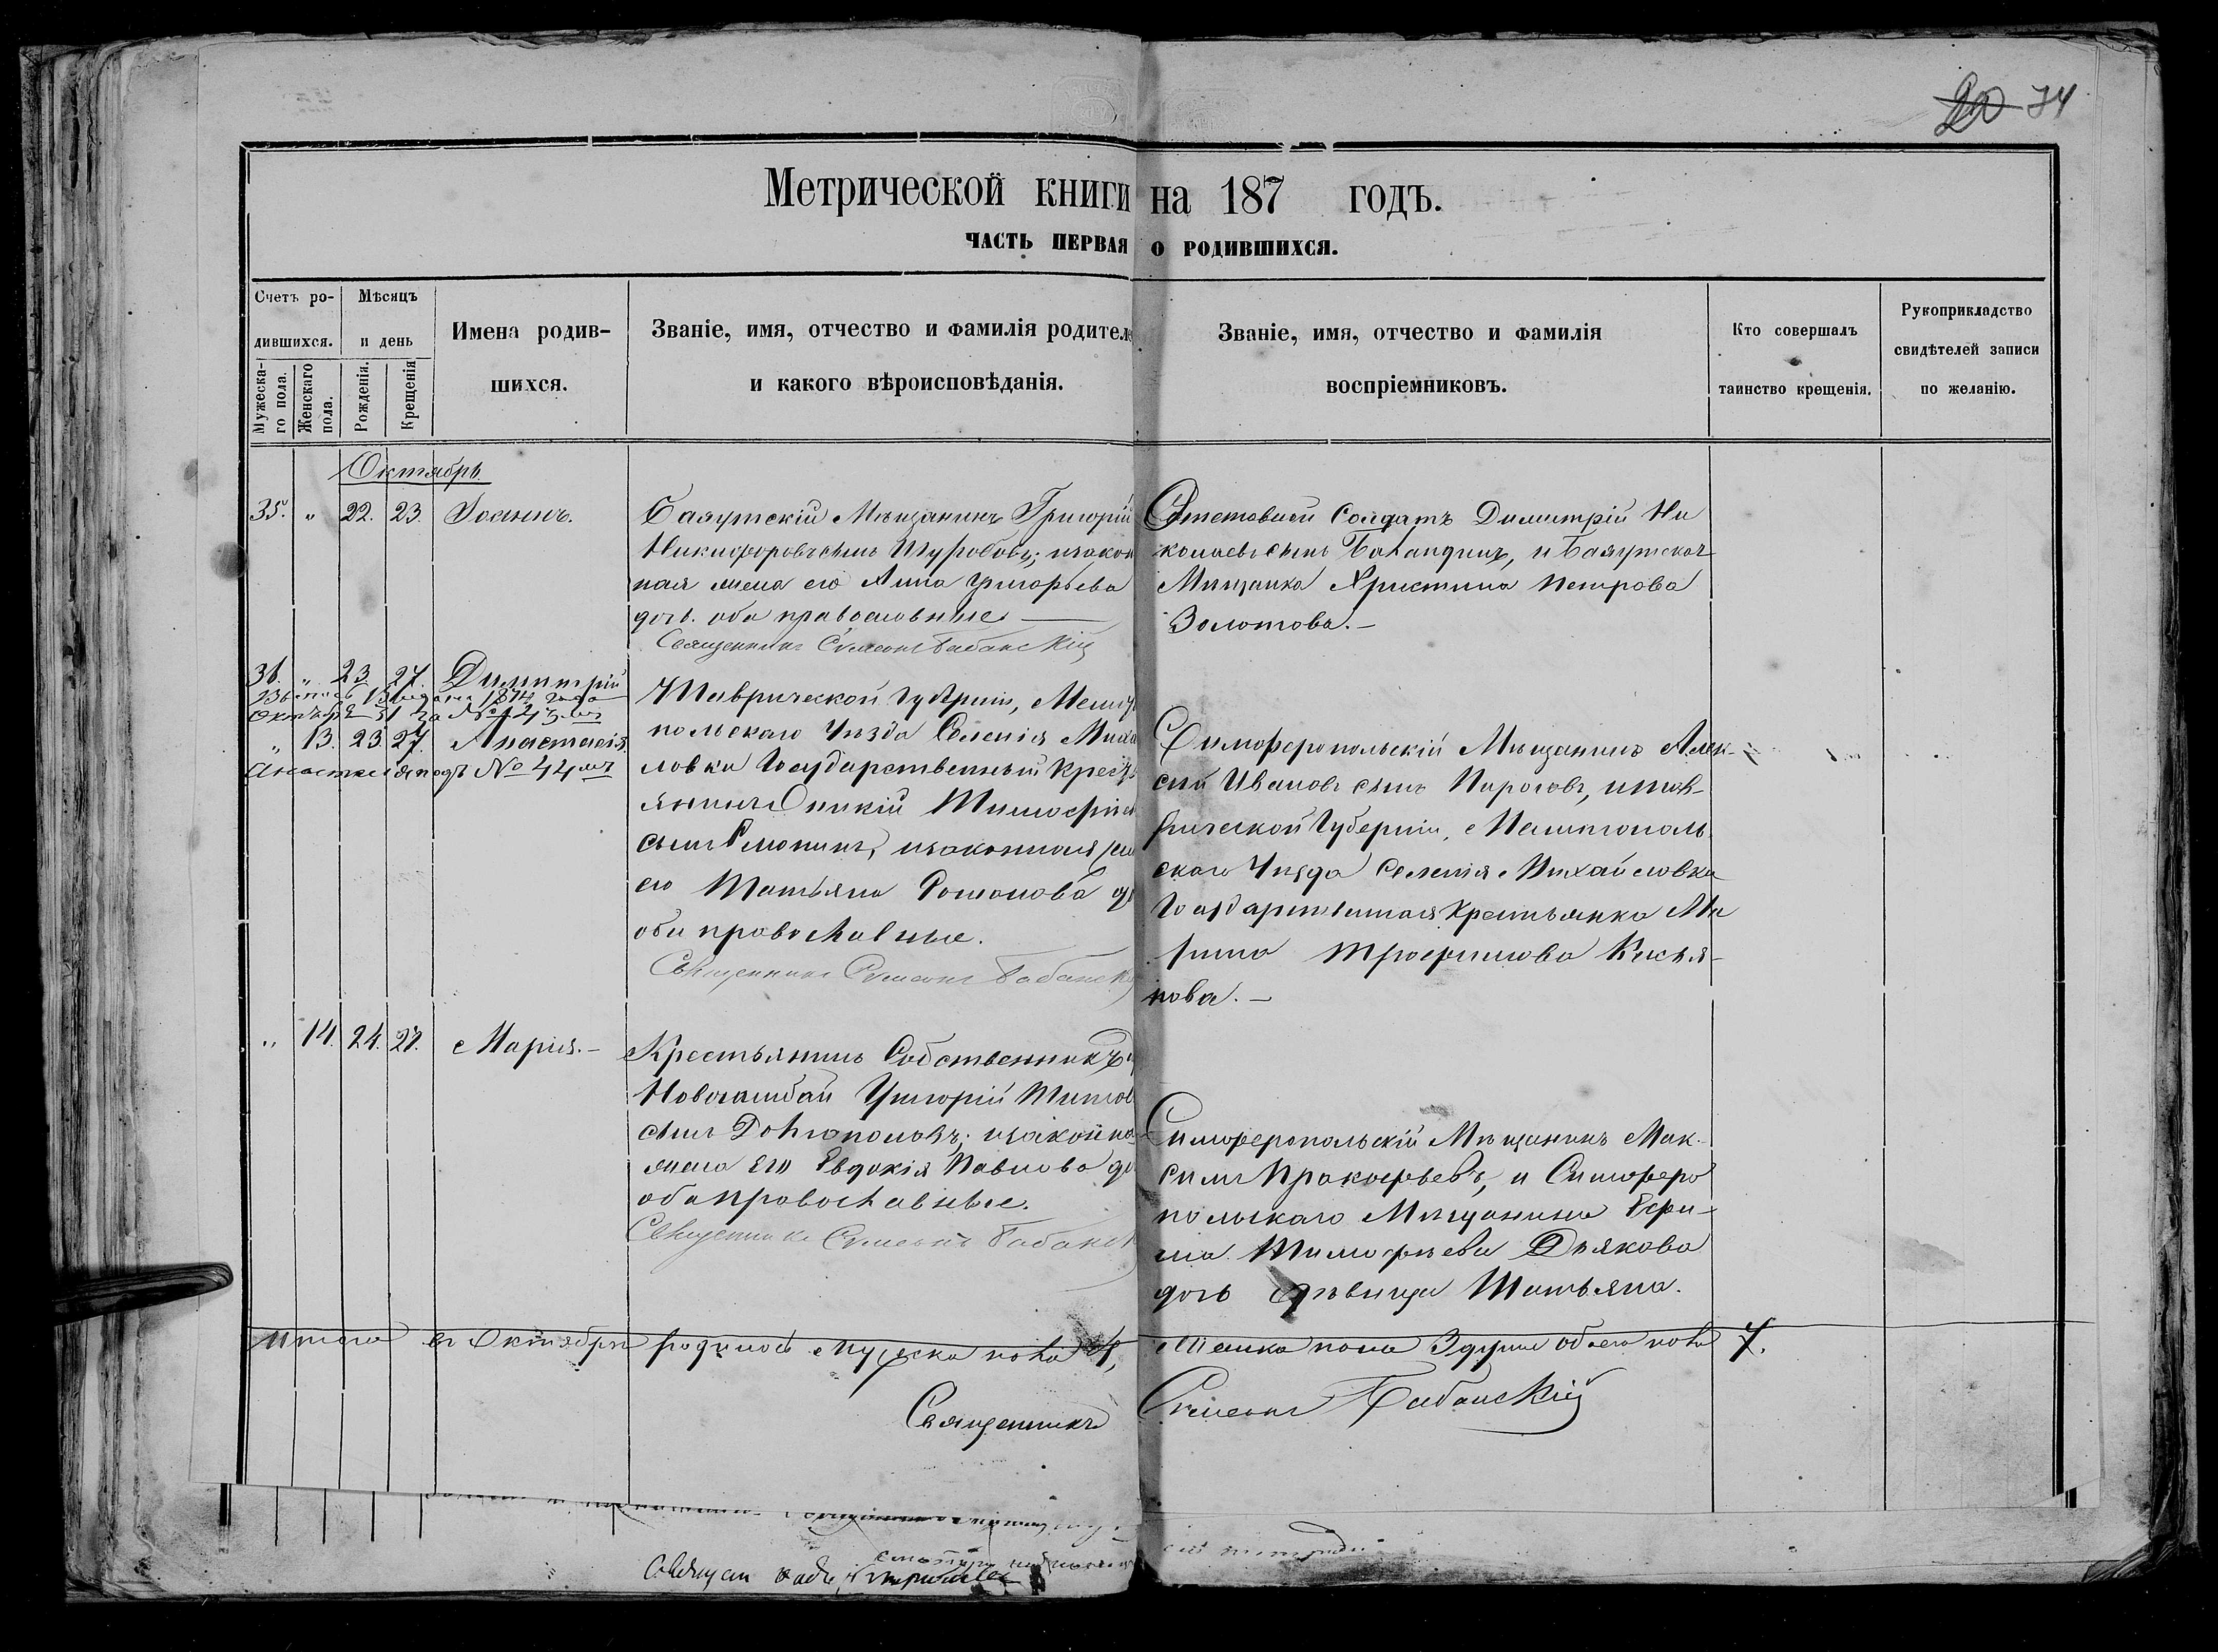 20 74
Метрической книги на 187 годъ.
ЧАСТЬ ПЕРВАЯ О РОДИВШИХСЯ.
Счетъ ро-
дившихся.
Мужеска-
го пола.
Женскаго
пола.
Мѣсяцъ
и день
Рожденія.
Крещенія
Имена родив-
шихся.
Званіе, имя, отчество и фамилія родител
и какого вѣроисповѣданія.
Званіе, имя, отчество и фамилія
воспріемниковъ.
Кто совершалъ
таинство крещенія.
Рукоприкладство
свидѣтелей записи
по желанію.
Октябрь
35. " 22. 23. Іоаннъ.
Мѣщанинъ Григорій
Никифоровъ сынъ изакон
ная жена его Анна Григорьева
доч. оба православные
Священникъ Сѵмеонъ Бабанскій
Отставной Солдатъ Димитрій Ни
колаевъ сынъ Баландинъ, и
Мѣщанка Христина Петрова
Золотова.-
36. " 23. 27. Димитрій
Выпись Выдана 1874 года
Октября 31 за № 43.мъ
" 13. 23. 27. Анастасія.
Анастасія подъ № 44мъ
Таврической Губерніи, Мелито
польскаго Уѣзда Селенія Миха
ловки Государственный Крестъ
янинъ
сынъ изаконная
его Татьяна Романова
оба православные.
Священникъ Сѵмеонъ Бабанск
Симферопольскій Мѣщанинъ Алек-
сѣй Ивановъ сынъ Пироговъ, итав-
рической Губерніи, Мелитополь
скаго Уѣзда Селенія Михайловка
Государственная Крестьянка Ма
рина Трофимова Касья-
нова.-
" 14. 24. 27. Марія.-
Крестьянинъ Собственникъ
Григорій Титов
сынъ Долгополовъ; изаконна
жена Его Евдокія Павлова до
оба православные.
Священникъ Сѵмеонъ Бабанск
Симферопольскій Мѣщанинъ Мак-
симъ Прокофьевъ, и Симферо
польскаго Мѣщанина Ефи-
ма Тимофѣева Дьякова
дочь дѣвица Татьяна.
Итого въ Октябрѣ родилось Мужеска пола 4,
Женска пола 3 душъ обоего пола 7.
Священникъ Сѵмеонъ Бабанскій